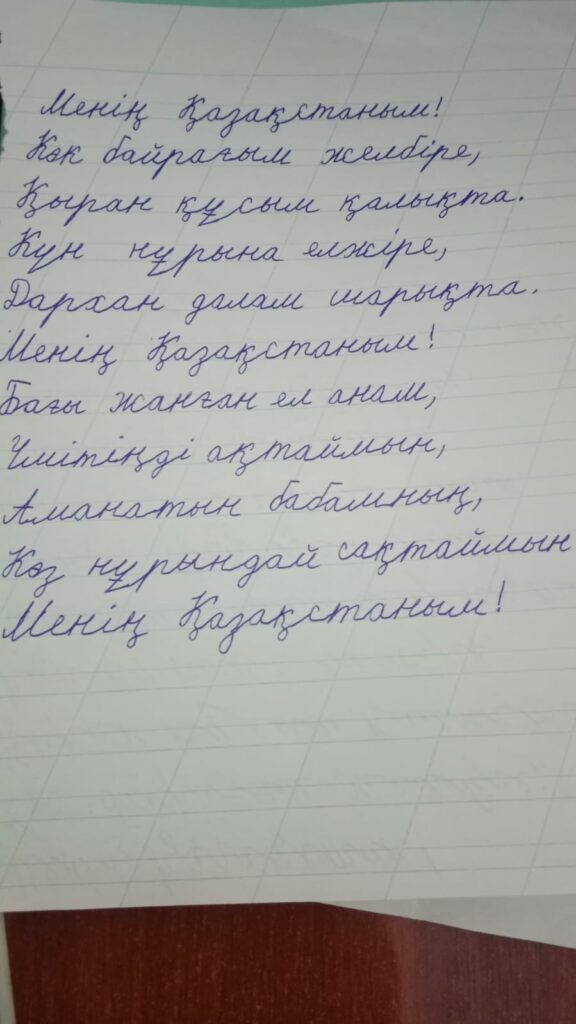 Менің Қазақстаным!
Көк байрағым желбіре,
Қыран құсым қалықта.
Күн нұрына елжіре,
Дархан далам шарықта.
Менің Қазақстаным!
Бағы жанған ел анам,
Үмітіңді ақтаймын,
Аманатын бабамның,
Көз нұрындай сақтаймын
Менің Қазақстаным!